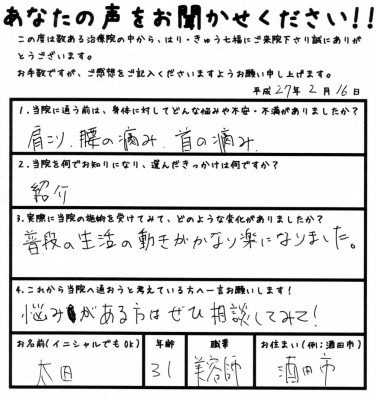 あなたの声をお聞かせください!!
この度は数ある治療院の中から、はり・きゅう七福にご来院下さり誠にありが
とうございます。
お手数ですが、ご感想をご記入くださいますようお願い申し上げます。
平成27年2月16日
1.当院に通う前は、身体に対してどんな悩みや不安・不満がありましたか?
肩こり、腰の痛み、首の痛み、
2.当院を何でお知りになり、選んだきっかけは何ですか?
紹介
3.実際に当院の施術を受けてみて、どのような変化がありましたか?
普段の生活の動きがかなり楽になりました。
4.これから当院へ通おうと考えている方へ一言お願いします!
悩みがある方はぜひ相談してみて!
お名前(イニシャルでもOK) 年齢 職業 お住まい(例:酒田市)
太田 31 美容師 酒田市